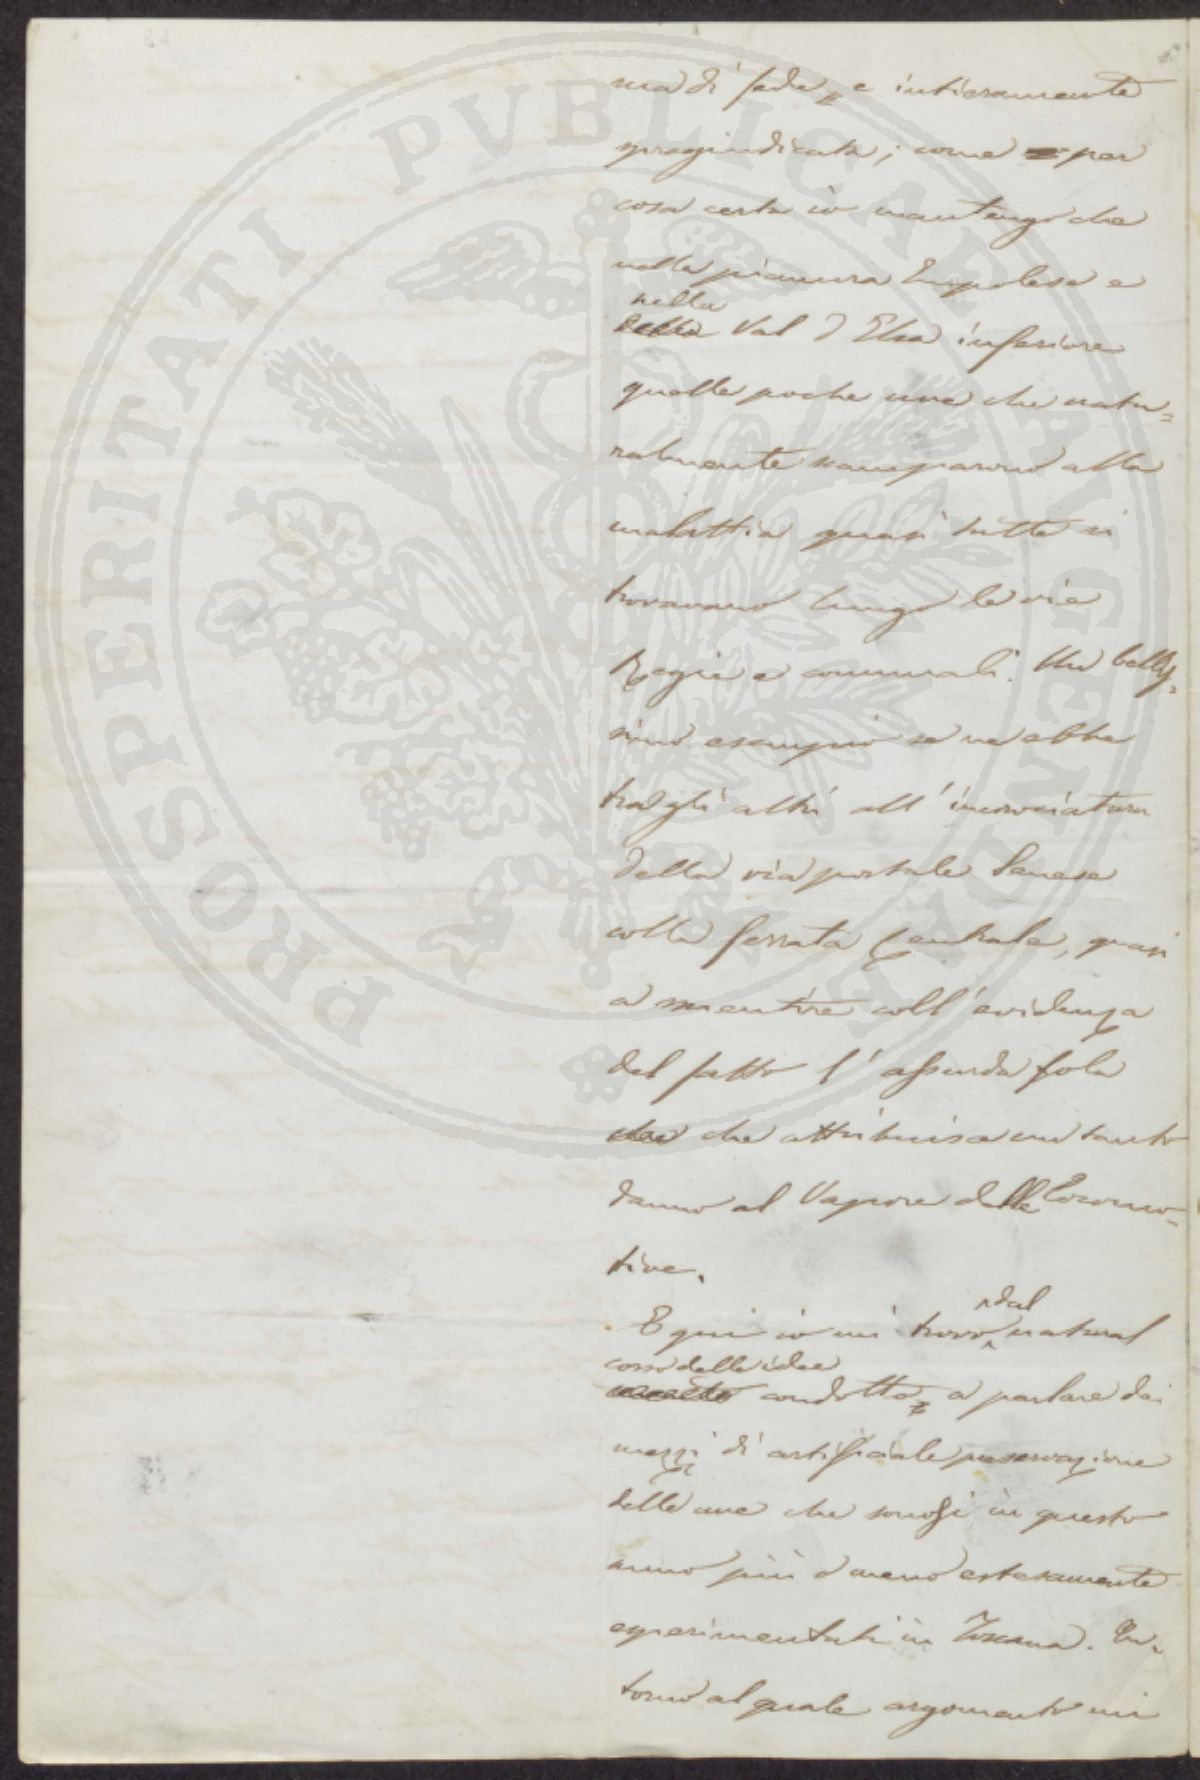 PROSPERITATI PUBLICAE AUGENDAE
ma di fede, e intieramente
pregiudicata; come per
cosa certa io mantengo che
nella pianura Empolese e
nella
della Val d'Elsa inferiore
quelle poche uve che natu=
ralmente scamparono alla
malattia quasi tutte si
trovavano lungo le vie
Regie e comunali. Un bellis=
simo esempio se ne ebbe
tra gli altri all'incrociatura
della via postale Senese
colla ferrata Centrale, quasi
a smentire coll'evidenza
del fatto l'assurda fola
che che attribuisce un tanto
danno al Vapore delle Locomo=
tive.
dal
E qui io mi trovo natural
corso delle idee
condotto, a parlare dei
mezzi di artificiale preservazione
delle uve che sonosi in questo
anno più o meno estesamente
esperimentati in Toscana. In=
torno al quale argomento mi